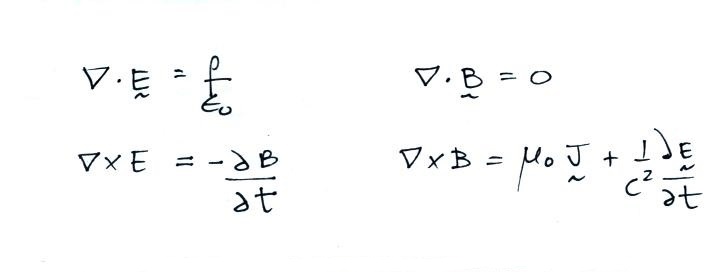 ∇·Ḛ = ρ/ε₀
∇·B̰ = 0
∇×E = -∂B/∂t
∇×B = μ₀ J̰ + 1/c² ∂Ḛ/∂t